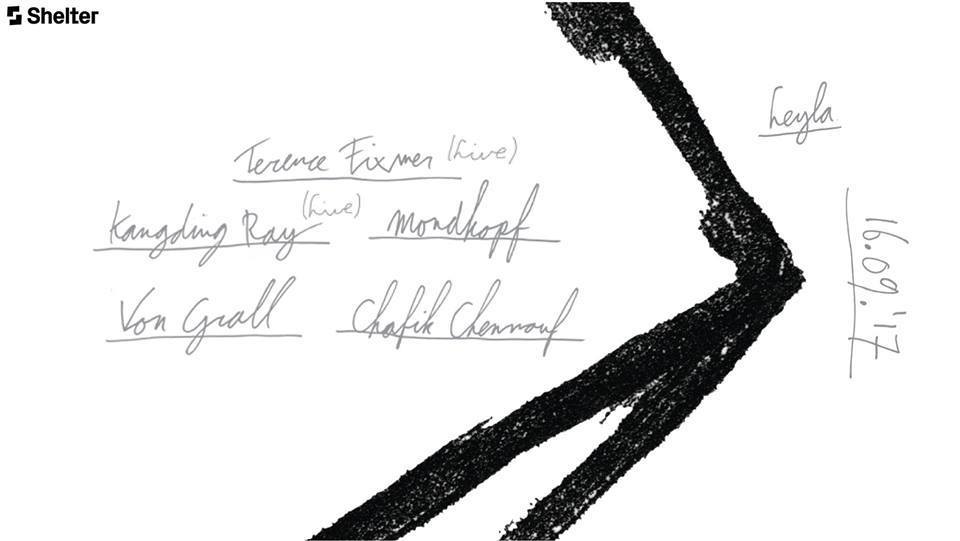 Shelter
Leyla
Terence Fixmer (Live)
Kangding Ray (Live) Mondkopf
Von Grall Chafik Chennouf
16.09.'17